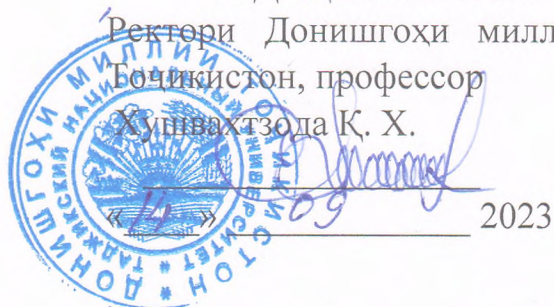 Ректори Донишгоҳи милл
Тоҷикистон, профессор
Хушвахтзода Қ. Х.
«14» 09 2023
ДОНИШГОҲИ МИЛЛИИ ТОҶИКИСТОН
ТАДЖИКСКИЙ НАЦИОНАЛЬНЫЙ УНИВЕРСИТЕТ